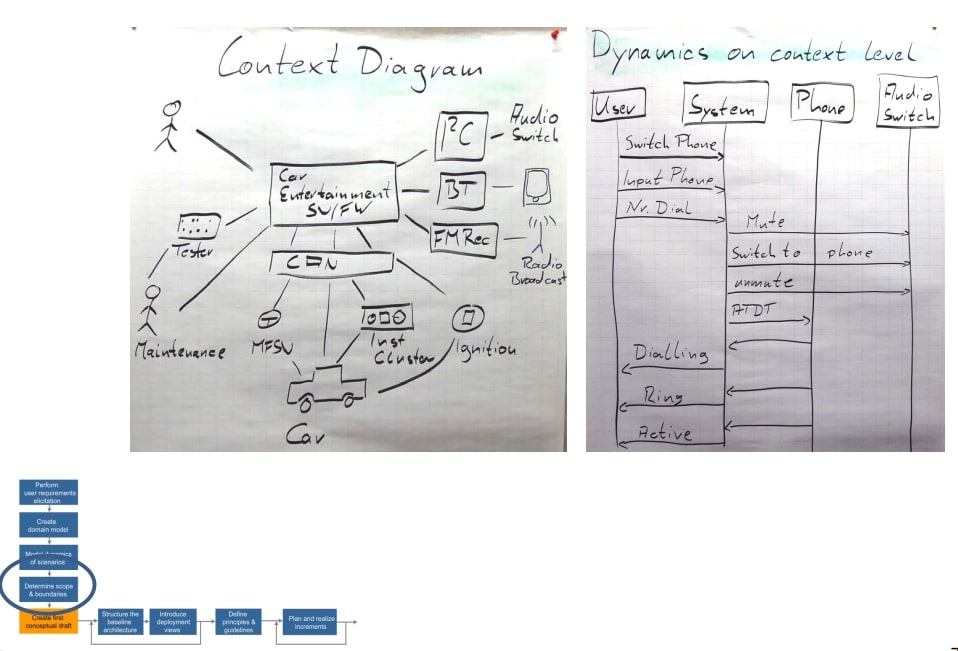 Context Diagram
I²C
Audio
Switch
Car
Entertainment
SW/FW
BT
FM Rec
Radio
Broadcast
Tester
CAN
Maintenance
MFSW
Inst
Cluster
Ignition
Car
Dynamics on context level
User
System
Phone
Audio
Switch
Switch Phone
Input Phone
Nr. Dial
Mute
Switch to phone
unmute
ATDT
Dialling
Ring
Active
Perform
user requirements
elicitation
Create
domain model
Model dynamics
of scenarios
Determine scope
& boundaries
Create first
conceptual draft
Structure the
baseline
architecture
Introduce
deployment
views
Define
principles &
guidelines
Plan and realize
increments